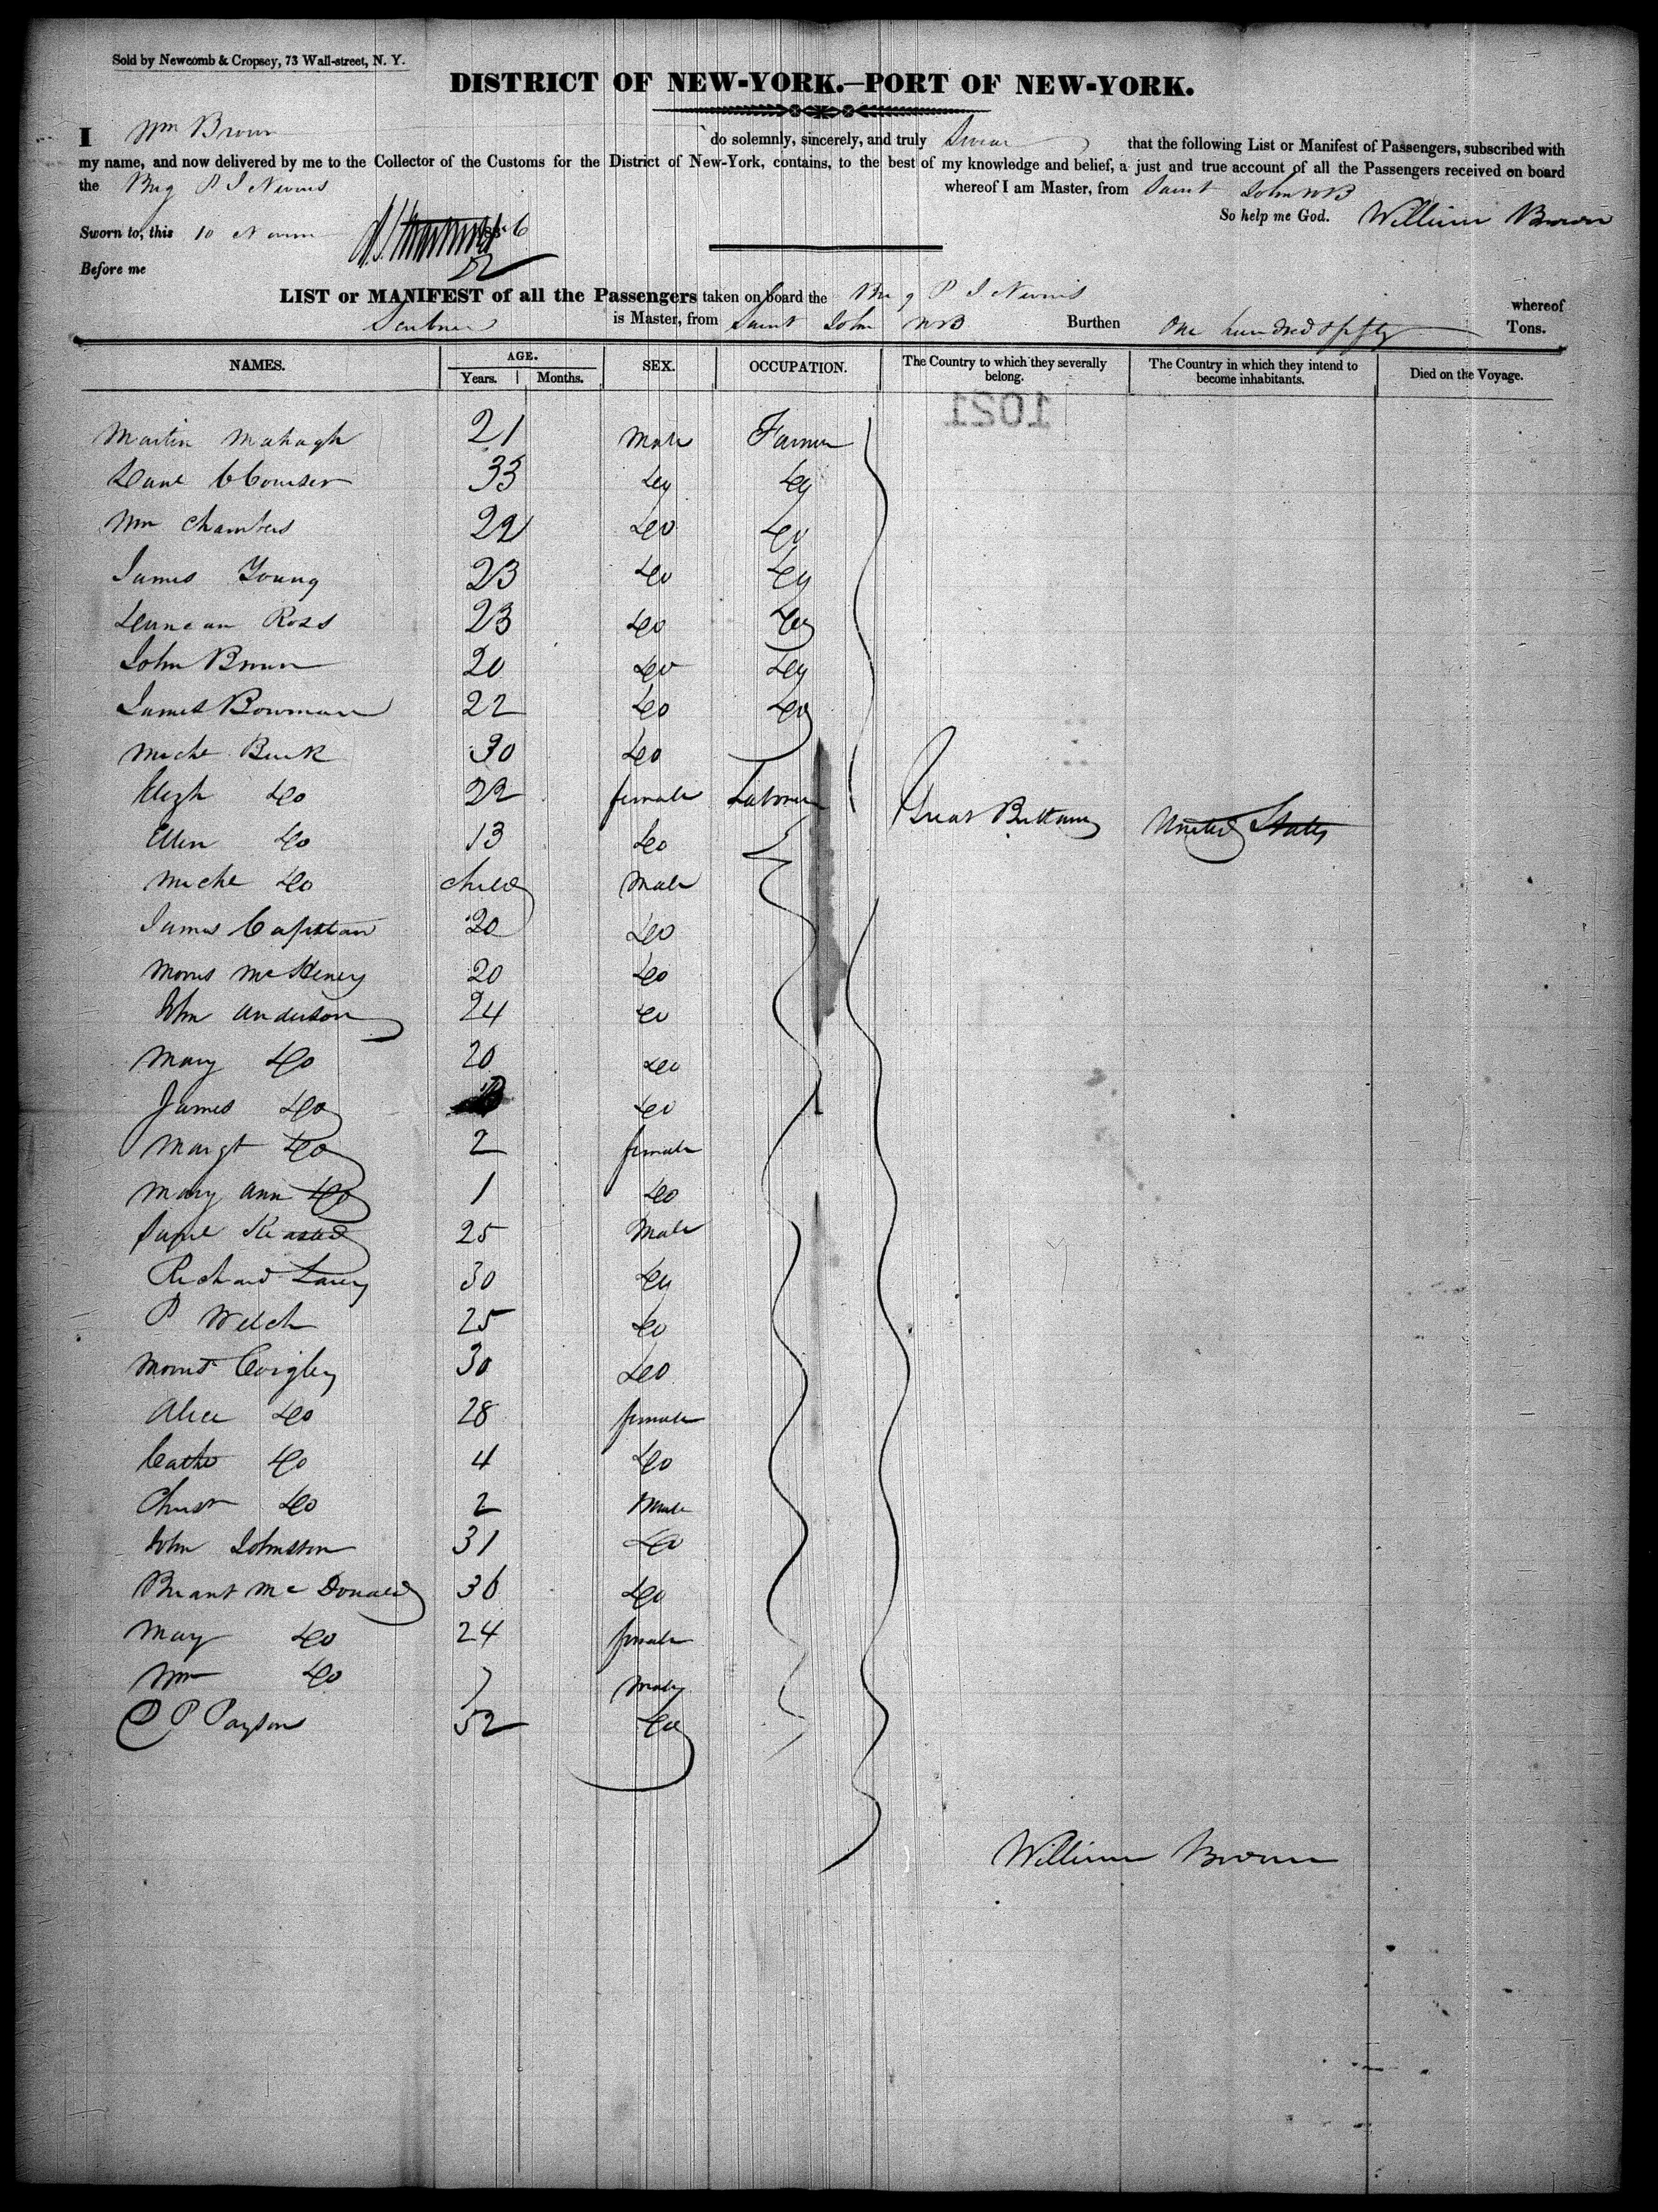 Sold by Newcomb & Cropsey, 73 Wall-street, N. Y.
DISTRICT OF NEW-YORK.—PORT OF NEW-YORK.
I Wm Brown do solemnly, sincerely, and truly Swear that the following List or Manifest of Passengers, subscribed with
my name, and now delivered by me to the Collector of the Customs for the District of New-York, contains, to the best of my knowledge and belief, a just and true account of all the Passengers received on board
the Brig P I Nevius whereof I am Master, from Saint John NB
So help me God. William Brown
Sworn to, this 10
Before me
LIST or MANIFEST of all the Passengers taken on board the Brig P I Nevius whereof
is Master, from Saint John NB Burthen One hundred & fifty Tons.
NAMES. AGE. SEX. OCCUPATION. The Country to which they severally belong. The Country in which they intend to become inhabitants. Died on the Voyage.
Years. Months.
1021
Martin 21 Male Farmer
33 Do Do
Wm Chambers 22 Do Do
James Young 23 Do Do
Duncan Ross 23 Do Do
John Brown 20 Do Do
James Bowman 22 Do Do
Miche Burk 30 Do
Do 22 female Labourer Great Brittain United States
Ellen Do 13 Do
Miche Do child Male
James 20 Do
Morris McHenery 20 Do
John Anderson 24 Do
Mary Do 20 Do
James Do Do
Margt Do 2 female
Mary Ann Do 1 Do
25 Male
Richard 30 Do
P Welch 25 Do
Quigley 30 Do
Alice Do 28 female
Cathe Do 4 Do
Do 2 Male
John Johnston 31 Do
Briant McDonald 36 Do
May Do 24 female
Wm Do 7 Male
P Payson 52 Do
William Brown